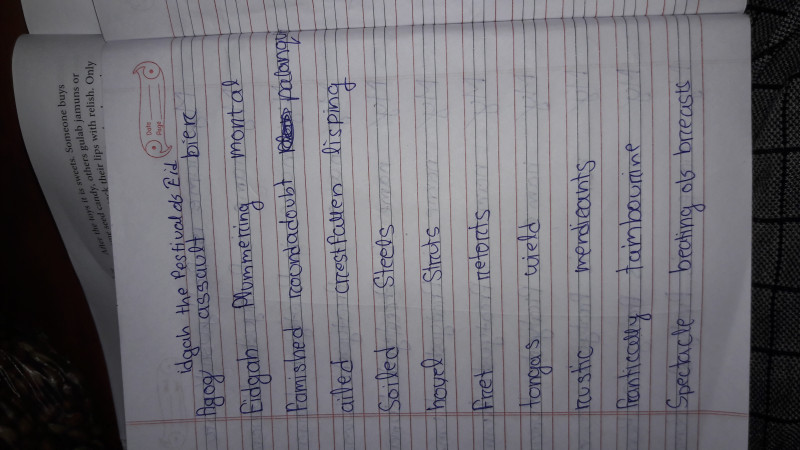 After the toys it is sweets. Someone buys
seed candy, others gulab jamuns or
their lips with relish. Only
Date
Page
idgah the festival of Eid
Agog assault bier
Eidgah Plummering mortal
Famished roundadoubt palanqu
ailed crestfallen lisping
Soiled Steels
hovel Struts
fret retorts
tongas wield
rustic mendicants
frantically tambourine
Spectacle beating of breasts